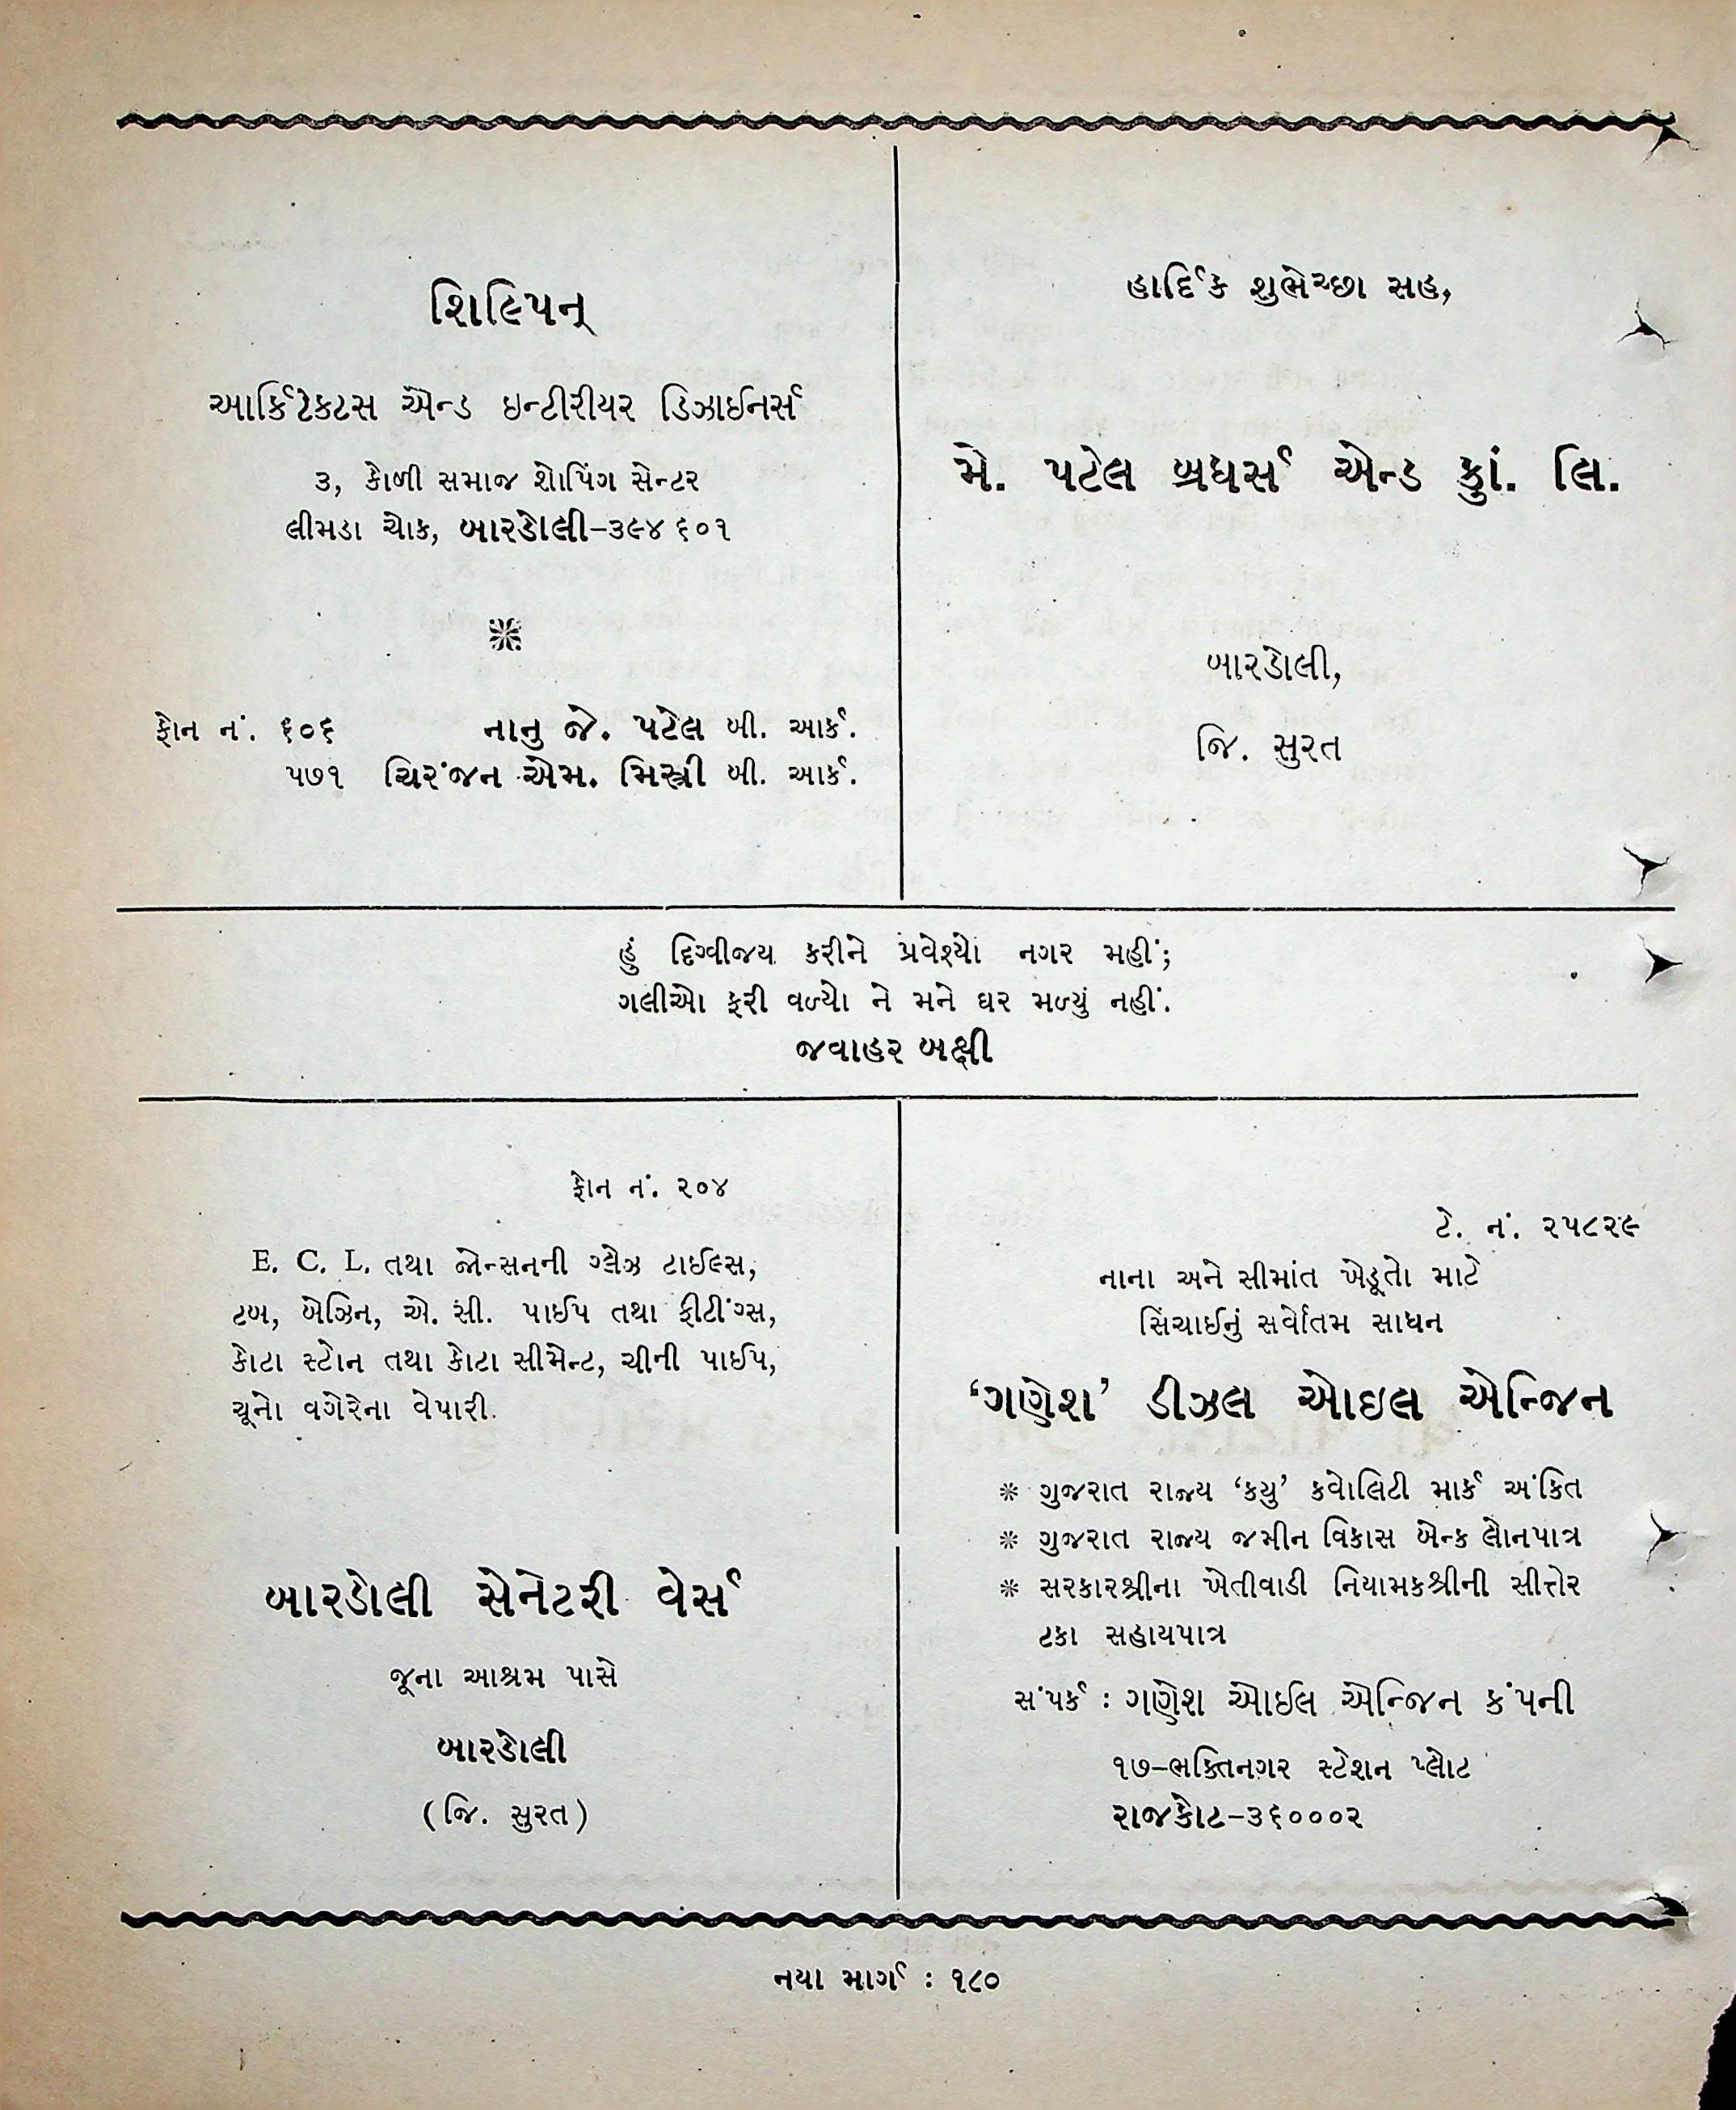 શિલ્પિન્
આર્કિટેકટસ એન્ડ ઇન્ટીરીયર ડિઝાઈનર્સ
૩, કોળી સમાજ શોપિંગ સેન્ટર
લીમડા ચોક, બારડોલી–૩૯૪ ૬૦૧
ફોન નં. ૬૦૬ નાનુ જે. પટેલ બી. આર્ક.
૫૭૧ ચિરંજન એમ. મિસ્ત્રી બી. આર્ક.
હાર્દિક શુભેચ્છા સહ,
મે. પટેલ બ્રધર્સ એન્ડ કુાં. લિ.
બારડોલી,
જિ. સુરત
હું દિગ્વીજય કરીને પ્રવેશ્યો નગર મહીં;
ગલીઓ ફરી વળ્યો ને મને ઘર મળ્યું નહીં.
જવાહર બક્ષી
ફોન નં. ૨૦૪
E. C. L. તથા જોન્સનની ગ્લેઝ ટાઈલ્સ,
ટબ, બેઝિન, એ. સી. પાઈપ તથા ફીટીંગ્સ,
કોટા સ્ટોન તથા કોટા સીમેન્ટ, ચીની પાઈપ,
ચૂનો વગેરેના વેપારી.
બારડોલી સેનેટરી વેર્સ
જૂના આશ્રમ પાસે
બારડોલી
(જિ. સુરત)
ટે. નં. ૨૫૮૨૯
નાના અને સીમાંત ખેડૂતો માટે
સિંચાઈનું સર્વોતમ સાધન
‘ગણેશ’ ડીઝલ ઓઇલ એન્જિન
* ગુજરાત રાજ્ય ‘કયુ’ કવોલિટી માર્ક અંકિત
* ગુજરાત રાજ્ય જમીન વિકાસ બેન્ક લોનપાત્ર
* સરકારશ્રીના ખેતીવાડી નિયામકશ્રીની સીત્તેર
ટકા સહાયપાત્ર
સંપર્ક : ગણેશ ઓઈલ એન્જિન કંપની
૧૭–ભક્તિનગર સ્ટેશન પ્લોટ
રાજકોટ–૩૬૦૦૦૨
નયા માર્ગ : ૧૮૦